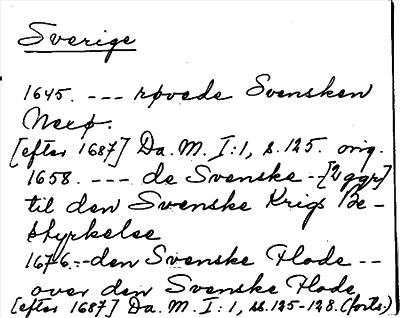 Sverige
1645. --- røvede Svensken
Nexø.
[efter 1687] Da. M. I:1, s. 125. orig.
1658. --- de Svenske -- [2 ggr]
til den Svenske Krigs Be-
styrkelse
1676 -- den Svenske Flode --
over den Svenske Flode
[efter 1687] Da. M. I:1, ss. 125-128. (forts.)